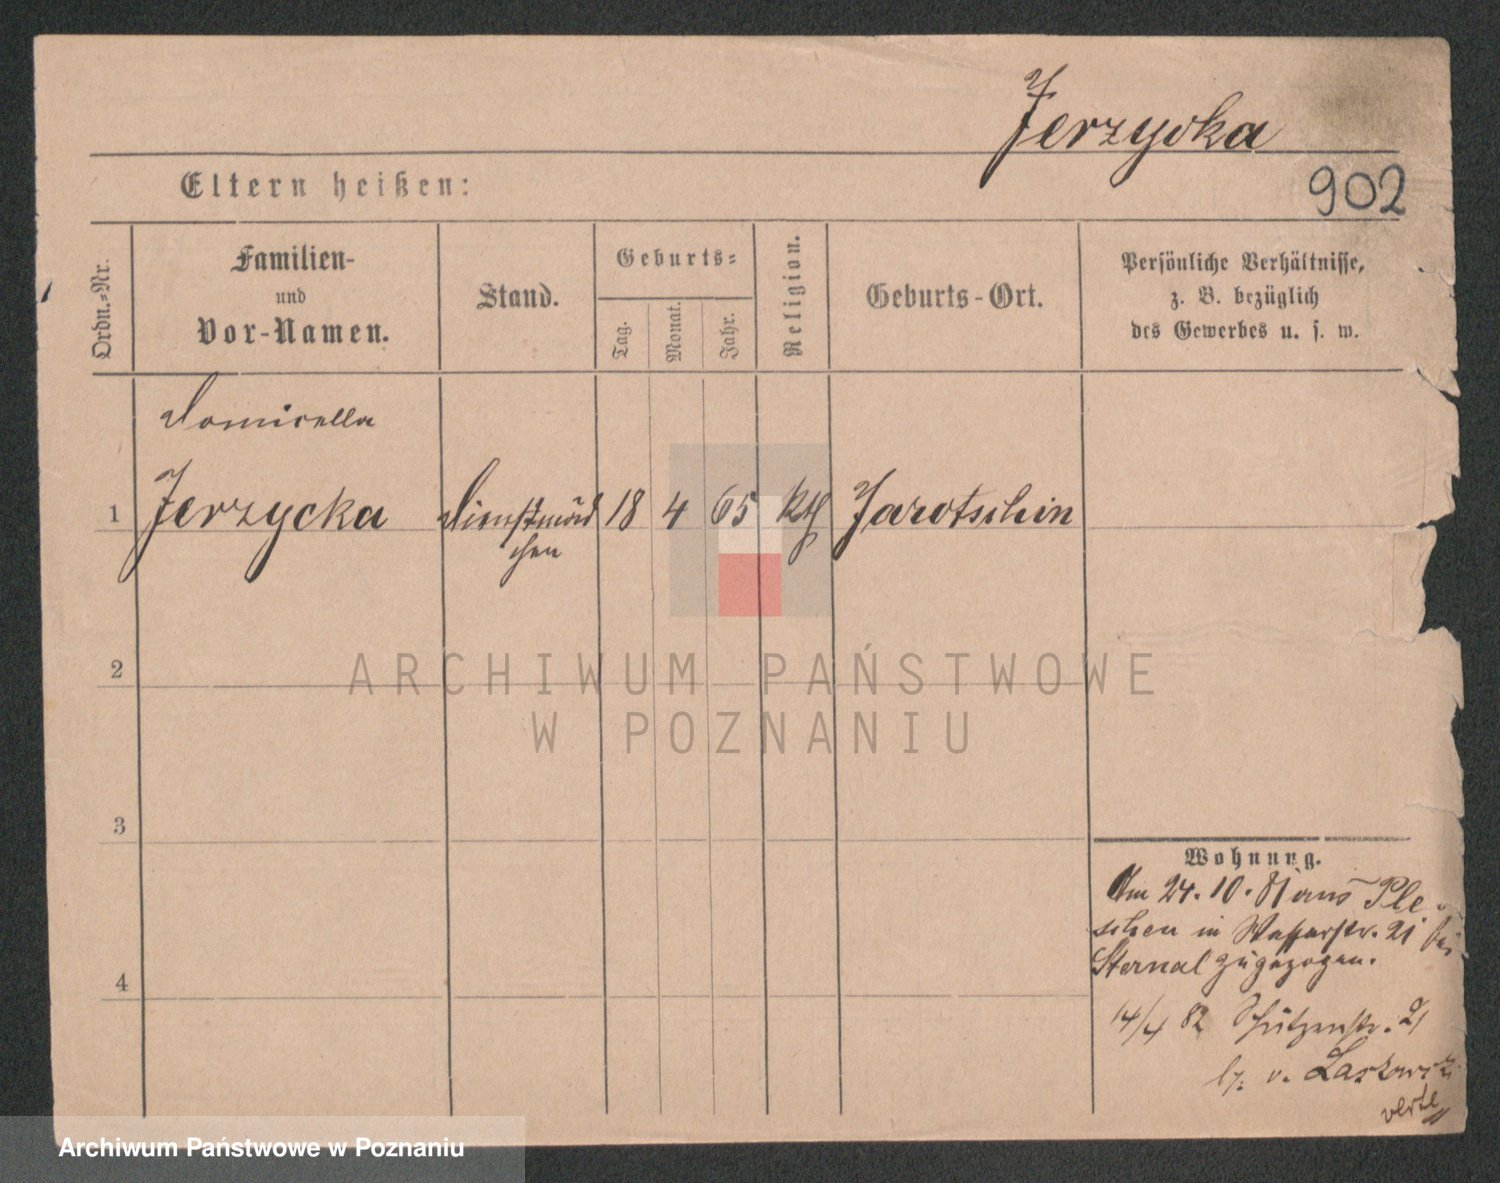 Jerzycka
902
Eltern heißen:
Ordn.-Nr.
Familien-
und
Vor-Namen.
Stand.
Geburts-
Tag.
Monat.
Jahr.
Religion.
Geburts-Ort.
Persönliche Verhältnisse,
z. B. bezüglich
des Gewerbes u. s. w.
Domicella
1 Jerzycka Dienstmäd 18 4 65 kth Jarotschin
chen
2
ARCHIWUM PAŃSTWOWE
W POZNANIU
3
Wohnung.
Am 24. 10. 81 aus Ple-
schen in Wasserstr. 21 bei
Sternal zugezogen.
4
14/4 82 Schützenstr. 21
b. v.
verte
Archiwum Państwowe w Poznaniu